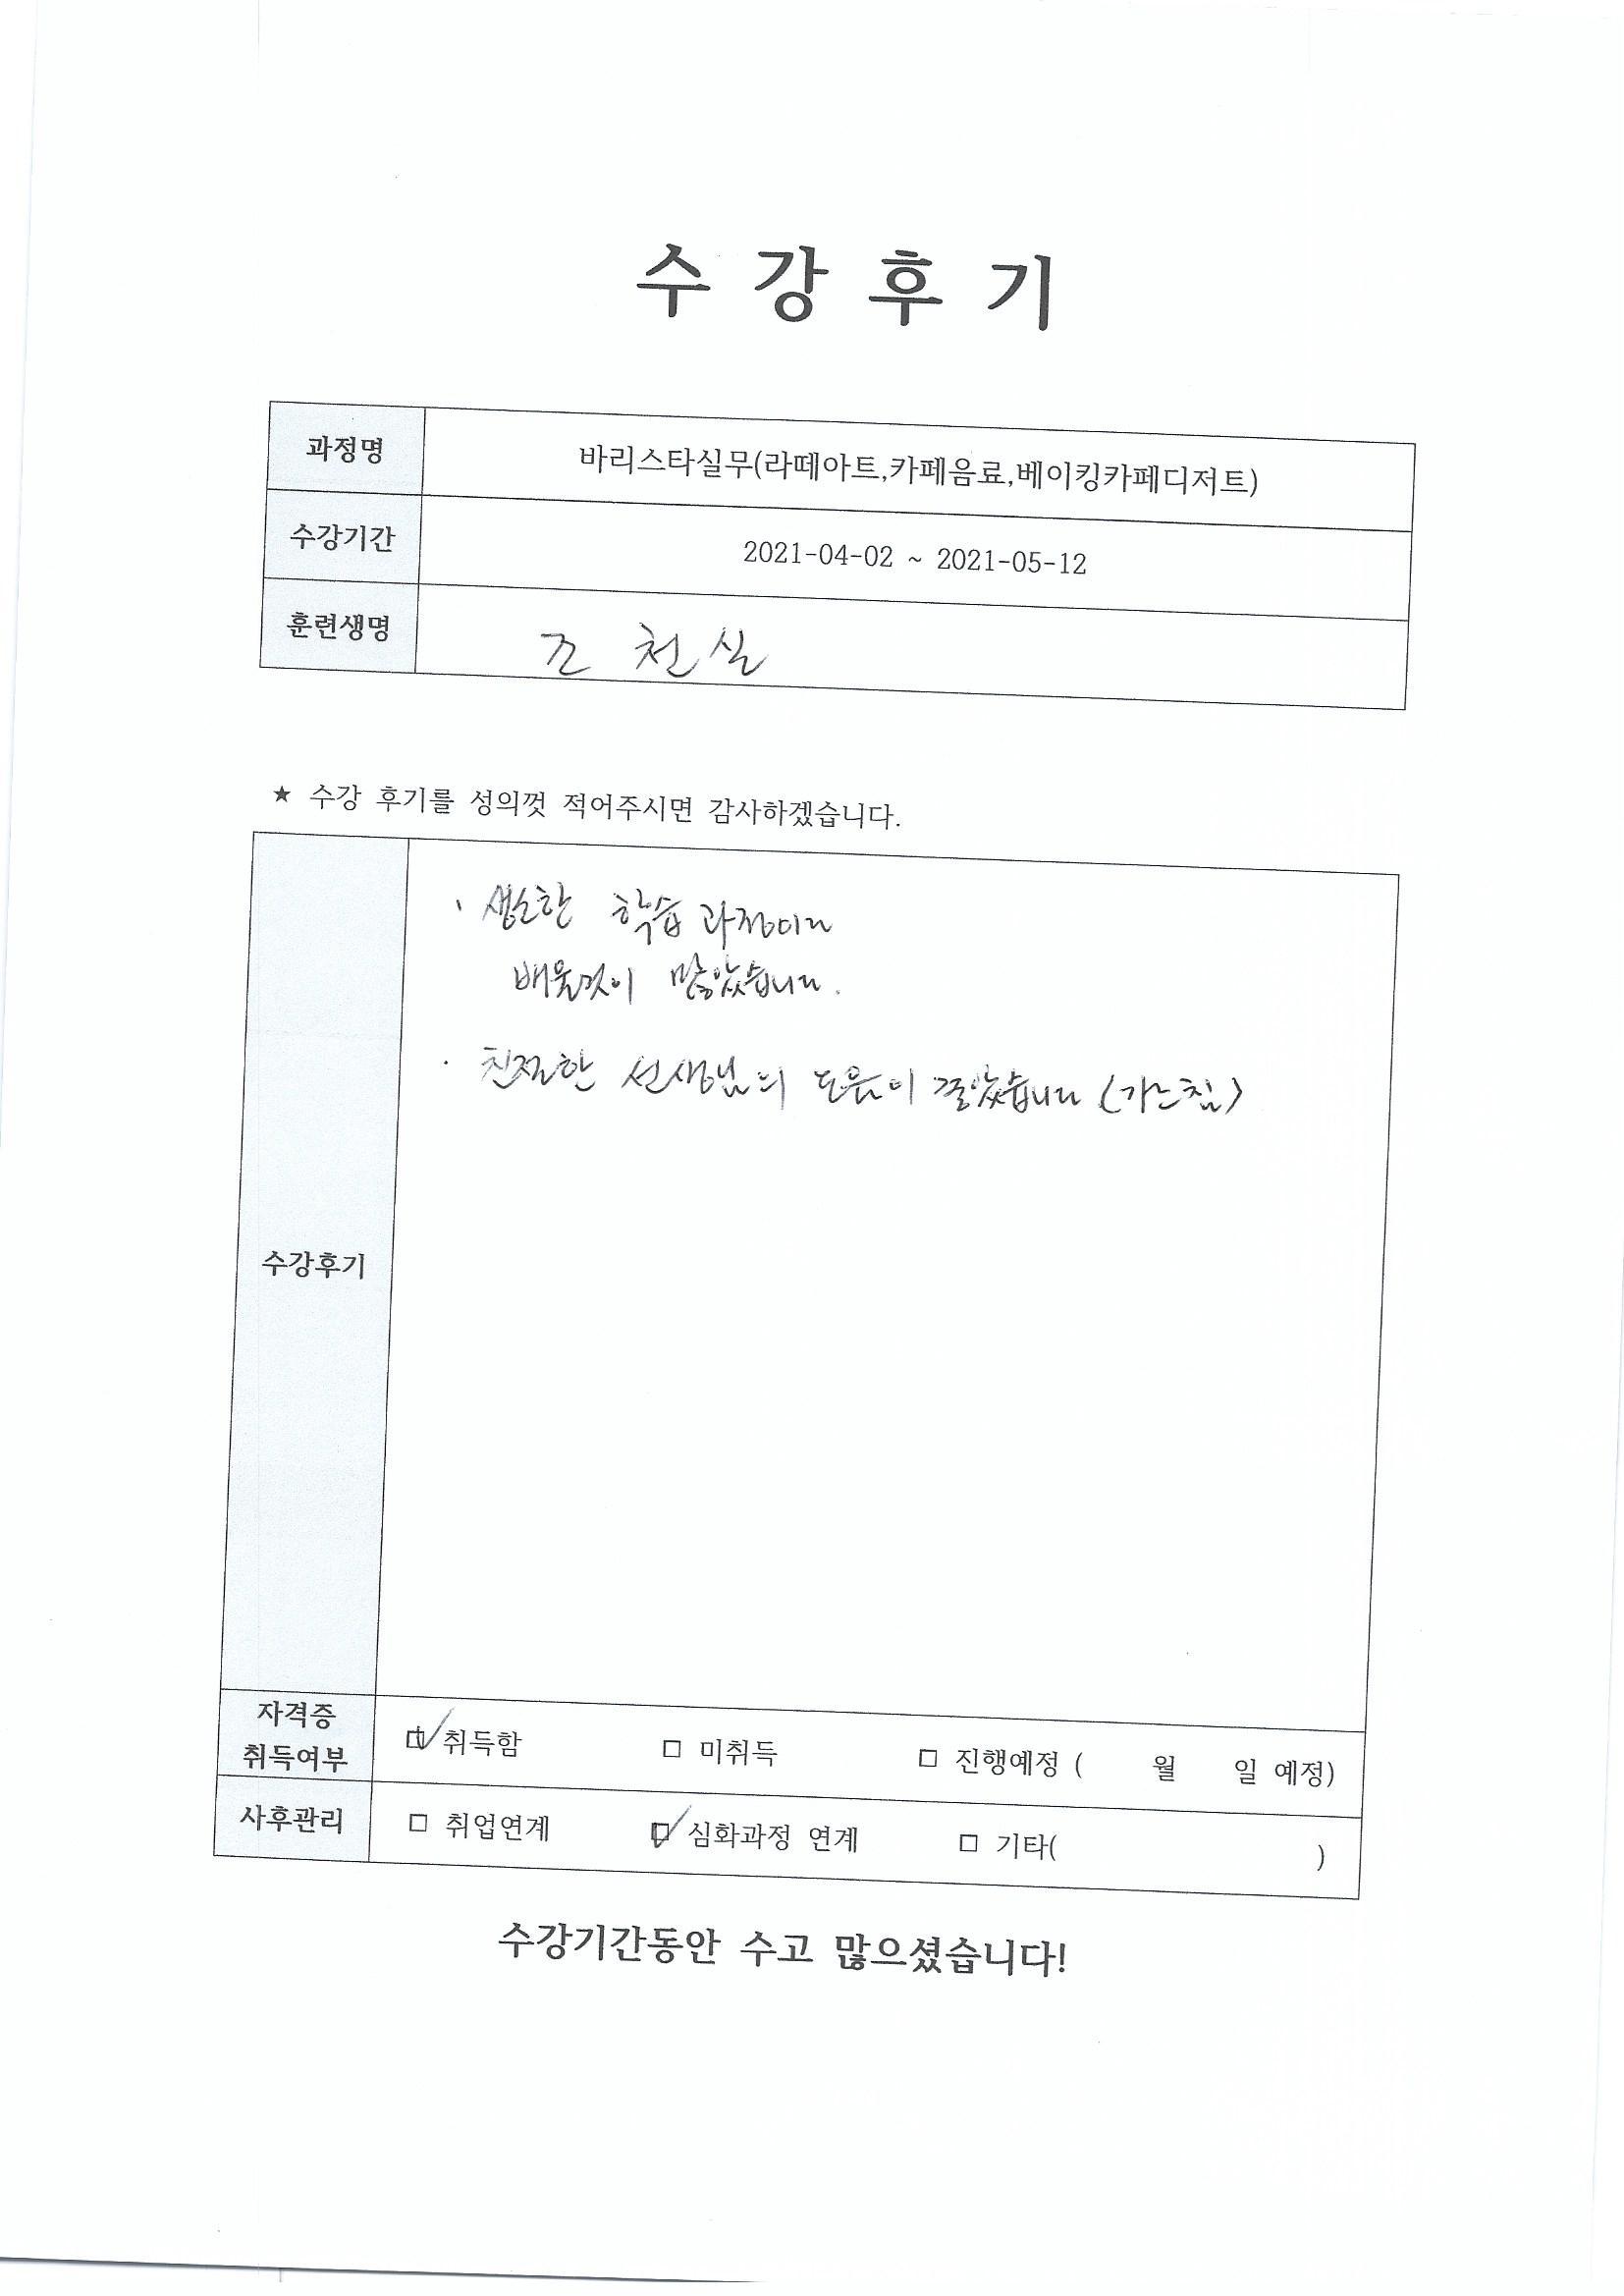 수강후기
과정명 바리스타실무(라떼아트,카페음료,베이킹카페디저트)
수강기간 2021-04-02 ~ 2021-05-12
훈련생명 조천실
★ 수강 후기를 성의껏 적어주시면 감사하겠습니다.
· 생소한 학습 과정이라
배울것이 많았습니다.
· 친절한 선생님의 도움이 좋았습니다 (가르침)
수강후기
자격증
취득여부 ☑ 취득함 □ 미취득 □ 진행예정 ( 월 일 예정)
사후관리 □ 취업연계 ☑ 심화과정 연계 □ 기타( )
수강기간동안 수고 많으셨습니다!